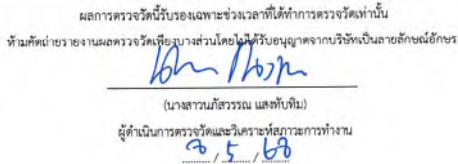 ผลการตรวจวัดนี้รับรองเฉพาะช่วงเวลาที่ได้ทำการตรวจวัดเท่านั้น
ห้ามคัดถ่ายรายงานผลตรวจวัดเพียงบางส่วนโดยไม่ได้รับอนุญาตจากบริษัทเป็นลายลักษณ์อักษร
(นางสาวนภัสวรรณ แสงทับทิม)
ผู้ดำเนินการตรวจวัดและวิเคราะห์สภาวะการทำงาน
/ 5 / 68